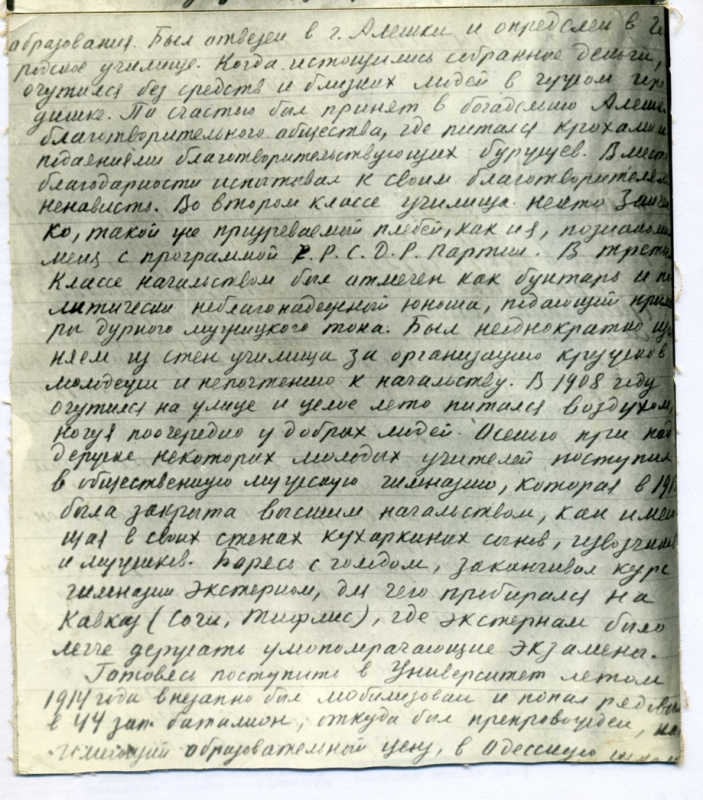 образования. Был отвезен в г. Алешки и определен в го
родское училище. Когда истощились собранные деньги,
очутился без средств и близких людей в чужом горо
дишке. По счастью был принят в богадельню Алешк
благотворительного общества, где питался крохами и
подаяниями благотворительствующих буржуев. Вместо
благодарности испытывал к своим благотворителям
ненависть. Во втором классе училища некто
ко, такой же призреваемый плебей, как и я, познакоми
меня с программой Р.С.Д.Р. Партии. В третьем
классе начальством был отмечен как бунтарь и по
литически неблагонадежный юноша, подающий приме
ры дурного мужицкого тона. Был неоднократно изго
няем из стен училища за организацию кружков
молодежи и непочтению к начальству. В 1908 году
очутился на улице и целое лето питался воздухом,
ночуя поочередно у добрых людей. Осенью при под
держке некоторых молодых учителей поступил
в общественную мужскую гимназию, которая в 191
была закрыта высшим начальством, как имею
щая в своих стенах кухаркиных сынов, извозчиков
и мужиков. Борясь с голодом, заканчивал курс
гимназии экстерном, для чего пробирался на
Кавказ (Сочи, Тифлис), где экстернам было
легче держать умопомрачающие экзамены.
Готовясь поступить в Университет летом
1914 года внезапно был мобилизован и попал рядовым
в 44 зап. баталион, откуда был препровожден, как
имеющий образовательный ценз, в Одесскую